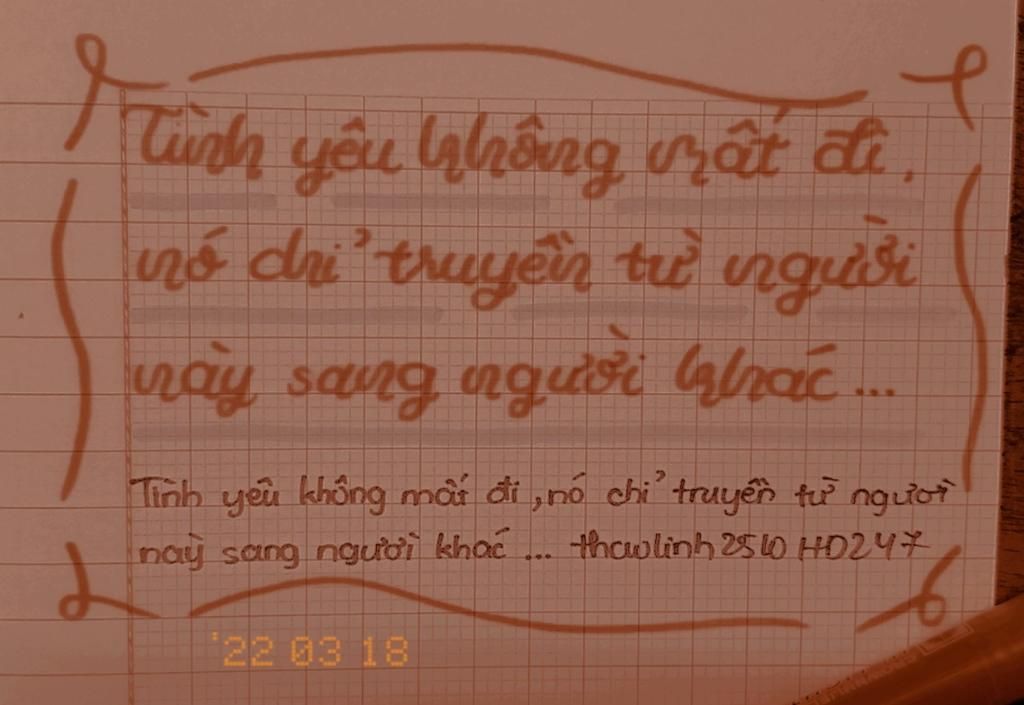 Tình yêu không mất đi,
nó chỉ truyền từ người
này sang người khác...
Tình yêu không mất đi, nó chỉ truyền từ người
này sang người khác ... thawlinh2510 HD247
'22 03 18